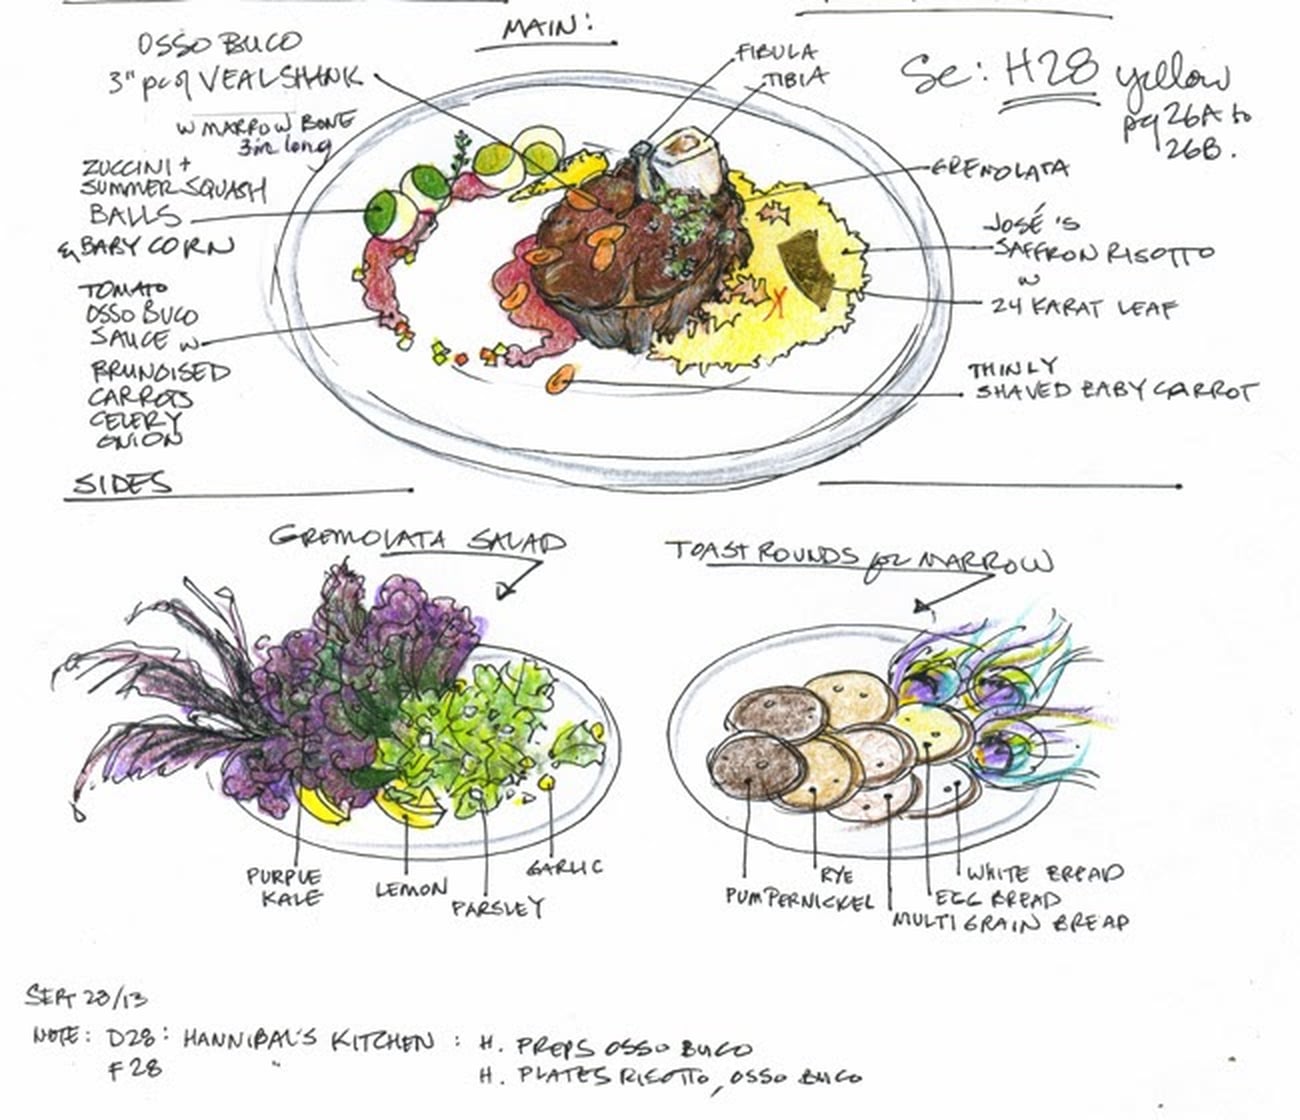 MAIN:
OSSO BUCO
3" pc of VEAL SHANK
W MARROW BONE
3in long
ZUCCINI +
SUMMER SQUASH
BALLS
& BABY CORN
TOMATO
OSSO BUCO
SAUCE w
BRUNOISED
CARROTS
CELERY
ONION
FIBULA
TIBIA
Sc: H28 yellow
pg 26A to
26B.
GREMOLATA
JOSÉ'S
SAFFRON RISOTTO
w
24 KARAT LEAF
THINLY
SHAVED BABY CARROT
SIDES
GREMOLATA SALAD
PURPLE
KALE
LEMON
PARSLEY
GARLIC
TOAST ROUNDS for MARROW
PUMPERNICKEL
RYE
MULTIGRAIN BREAD
EGG BREAD
WHITE BREAD
SEPT 23/13
NOTE: D28: HANNIBAL'S KITCHEN : H. PREPS OSSO BUCO
F28 " H. PLATES RISOTTO, OSSO BUCO